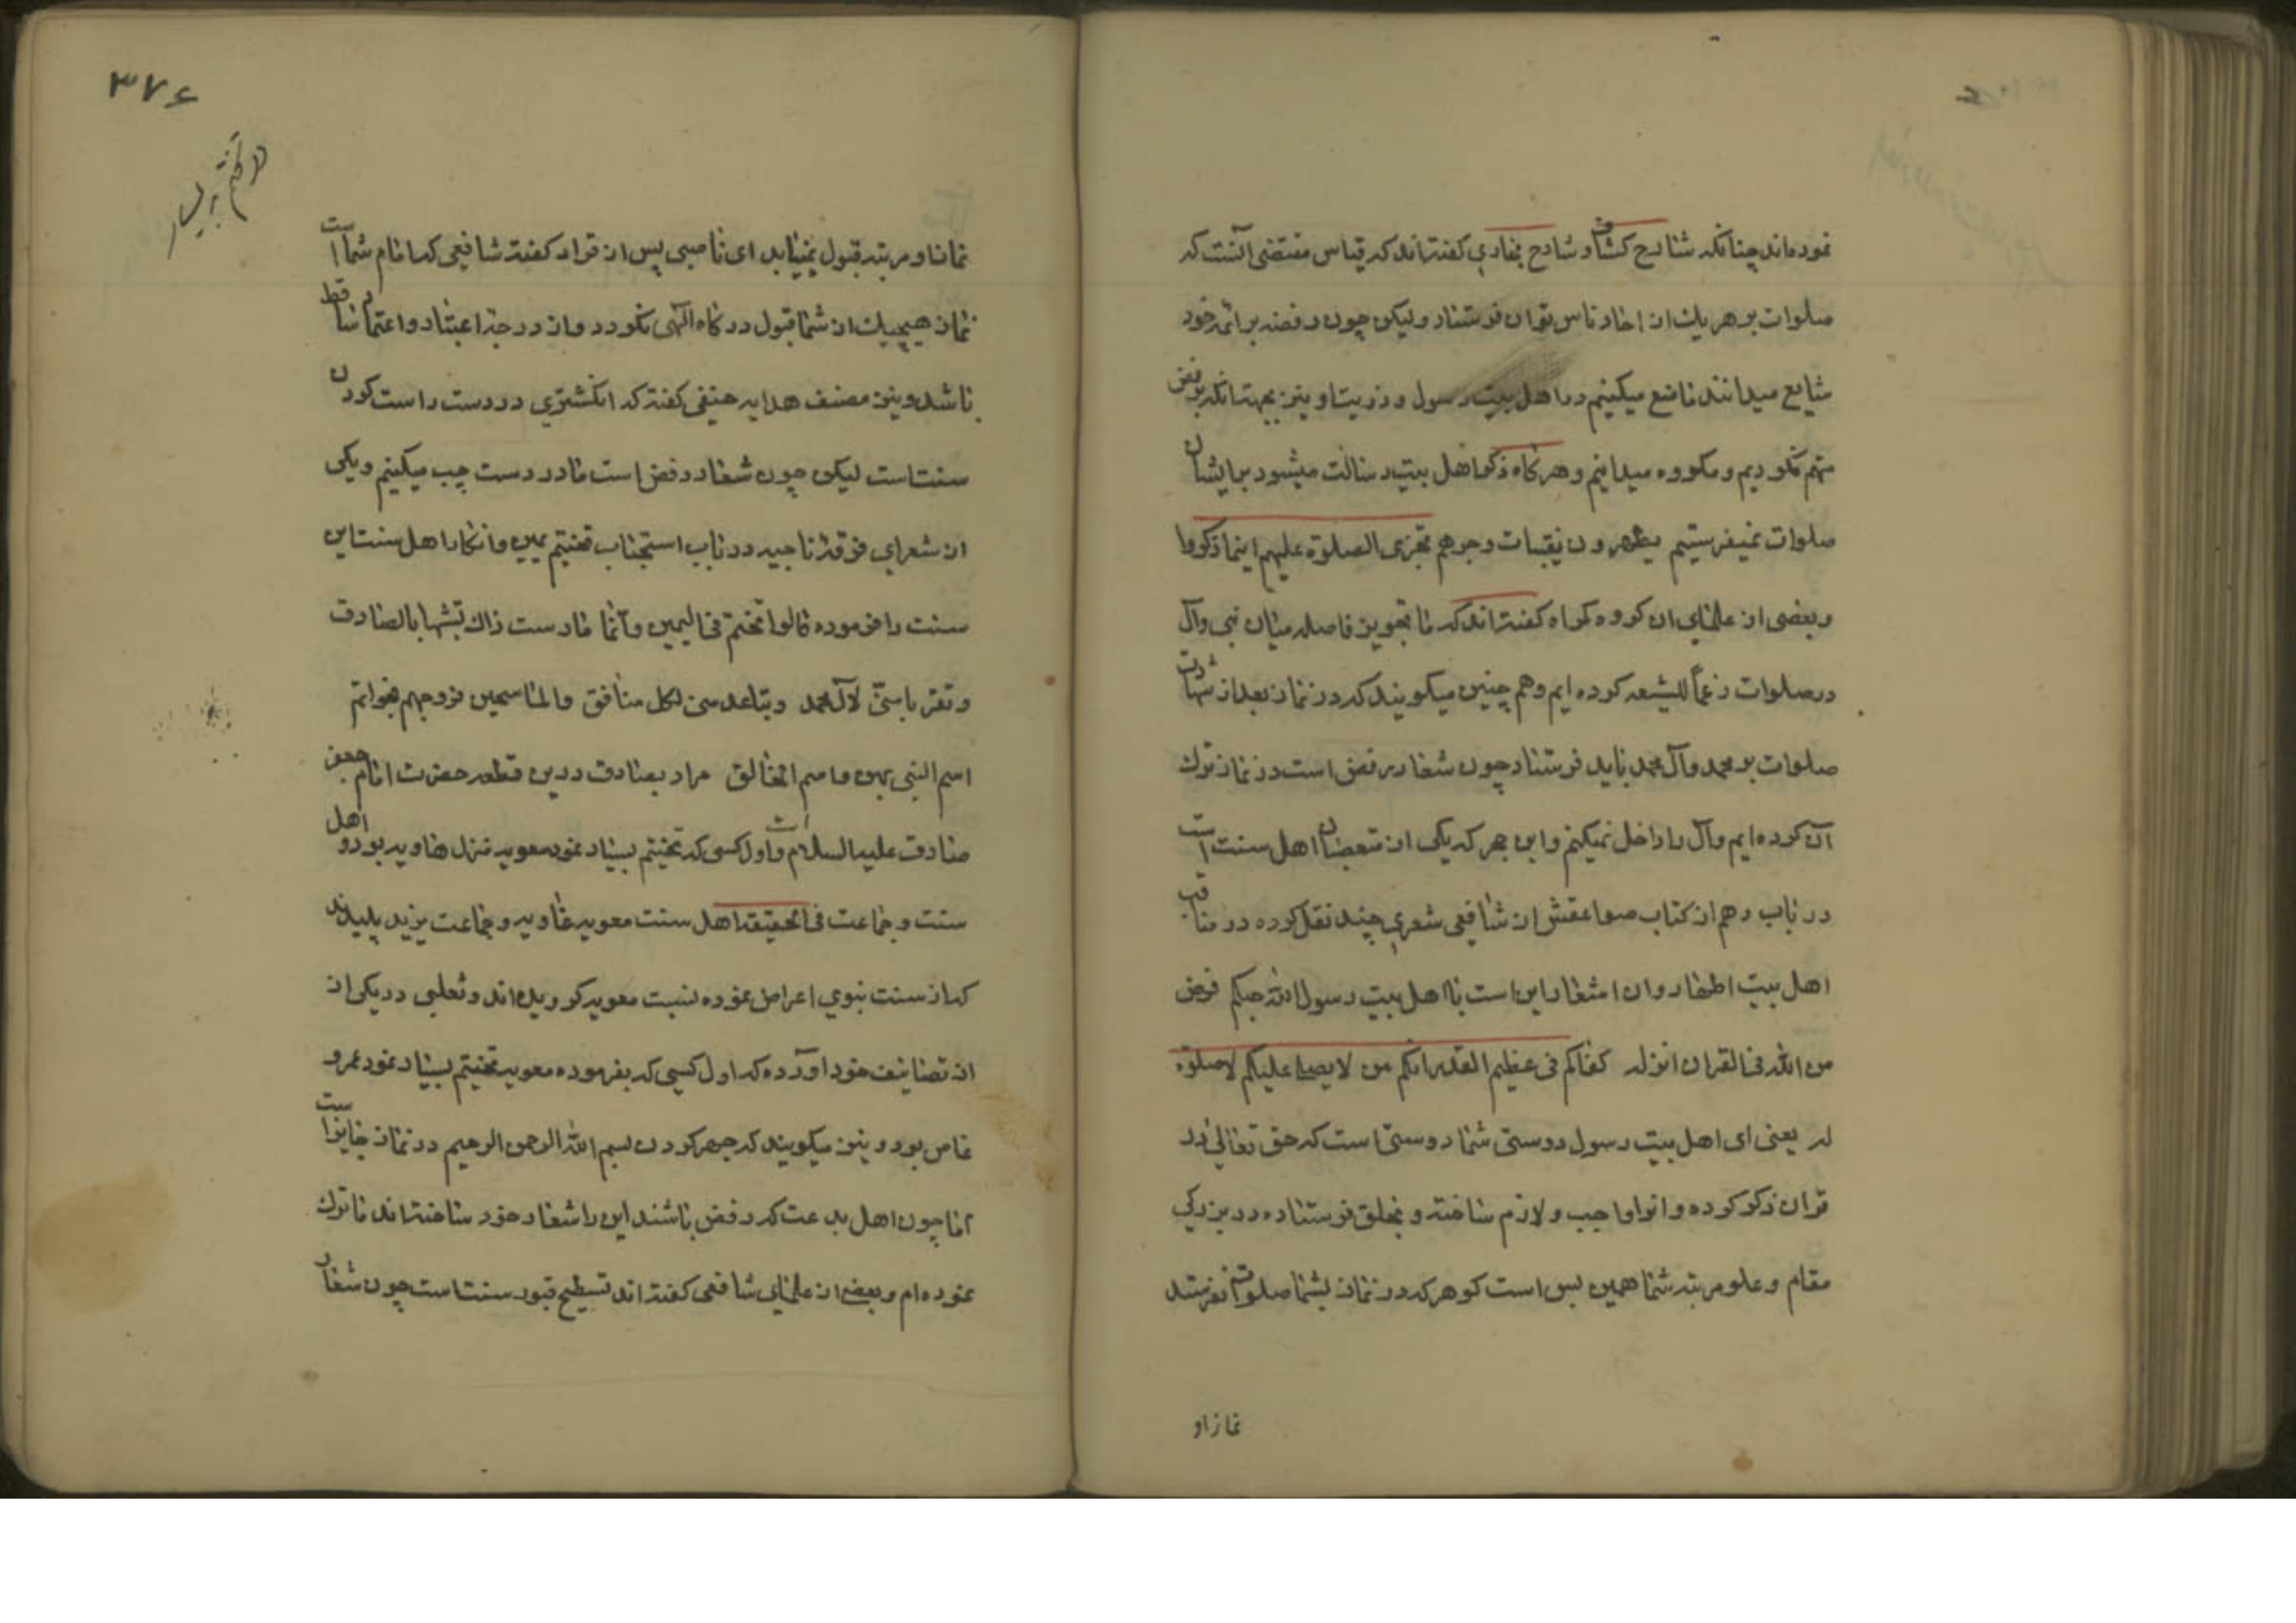 نموده‌اند چنانکه شارح کشاف و شارح بخاری گفته‌اند که قیاس مقتضی آنست که
صلوات بر هر یک از احاد ناس توان فرستاد ولیکن چون رفضه بر ائمه خود
شایع میدانند ما منع میکنیم در اهل بیت رسول و ذریت او نیز بجهت انکه برفض
متهم نکردیم و مکروه میدانیم و هرگاه ذکر اهل بیت رسالت میشود بر ایشان
صلوات نمیفرستیم یظهرون وجوههم تجزی الصلوة علیهم اینما ذکروا
و بعضی از علمای ان کروه کمراه گفته‌اند که ما تجویز فاصله میان نبی و آل
در صلوات رغماً للشیعه کرده ایم و هم چنین میکویند که در نماز بعد از شهادت
صلوات بر محمد و آل محمد باید فرستاد چون شعار رفض است در نماز ترک
آن کرده ایم و آل را داخل نمیکنیم و ابن حجر که یکی از متعصبان اهل سنت است
در باب دهم از کتاب صواعقش از شافعی شعری چند نقل کرده در مناقب
اهل بیت اطهار و ان اشعار این است یا اهل بیت رسول الله حبکم فرض
من الله فی القران انزله کفاکم فی عظیم القدر انکم من لا یصل علیکم لا صلوة
له یعنی ای اهل بیت رسول دوستی شما دوستی است که حق تعالی در
قران ذکر کرده و انرا واجب و لازم ساخته و بخلق فرستاده در بزرکی
مقام و علو مرتبه شما همین بس است که هر که در نماز بشما صلوات نفرستد
نماز او
۳۷۶
نماز او مرتبه قبول نمییابد ای ناصبی پس از قرار گفته شافعی که امام شما است
نماز هیچیک از شما قبول درگاه الهی نکردد و از درجه اعتبار و اعتماد ساقط
باشد و نیز مصنف هدایه حنفی گفته که انکشتری در دست راست کردن
سنت است لیکن چون شعار رفض است ما در دست چپ میکنیم و یکی
از شعرای فرقه ناجیه در باب استحباب تختم یمین و انکار اهل سنت این
سنت را فرموده قالوا تختم فی الیمین و انما مارست ذاک تشبها بالصادق
و تقربا منی لال محمد و تباعد منی لکل منافق و الماسحین فروجهم بخواتم
اسم النبی بهن و اسم الخالق مراد بصادق درین قطعه حضرت امام جعفر
صادق علیه السلام است و اول کسی که تختم بیسار نمود معویه منزل هاویه بود و اهل
سنت و جماعت فی الحقیقه اهل سنت معویه غاویه و جماعت یزید پلیدند
که از سنت نبوی اعراض نموده بسنت معویه گرویده‌اند و ثعلبی در یکی از
از تصانیف خود اورده که اول کسی که بفرموده معویه تختم بیسار نمود عمرو
عاص بود و نیز میکویند که جهر کردن بسم الله الرحمن الرحیم در نماز جایز است
اما چون اهل بدعت که رفض باشند این را شعار خود ساخته‌اند ما ترک
نموده‌ام و بعضی از علمای شافعی گفته‌اند تسطیح قبور سنت است چون شعار